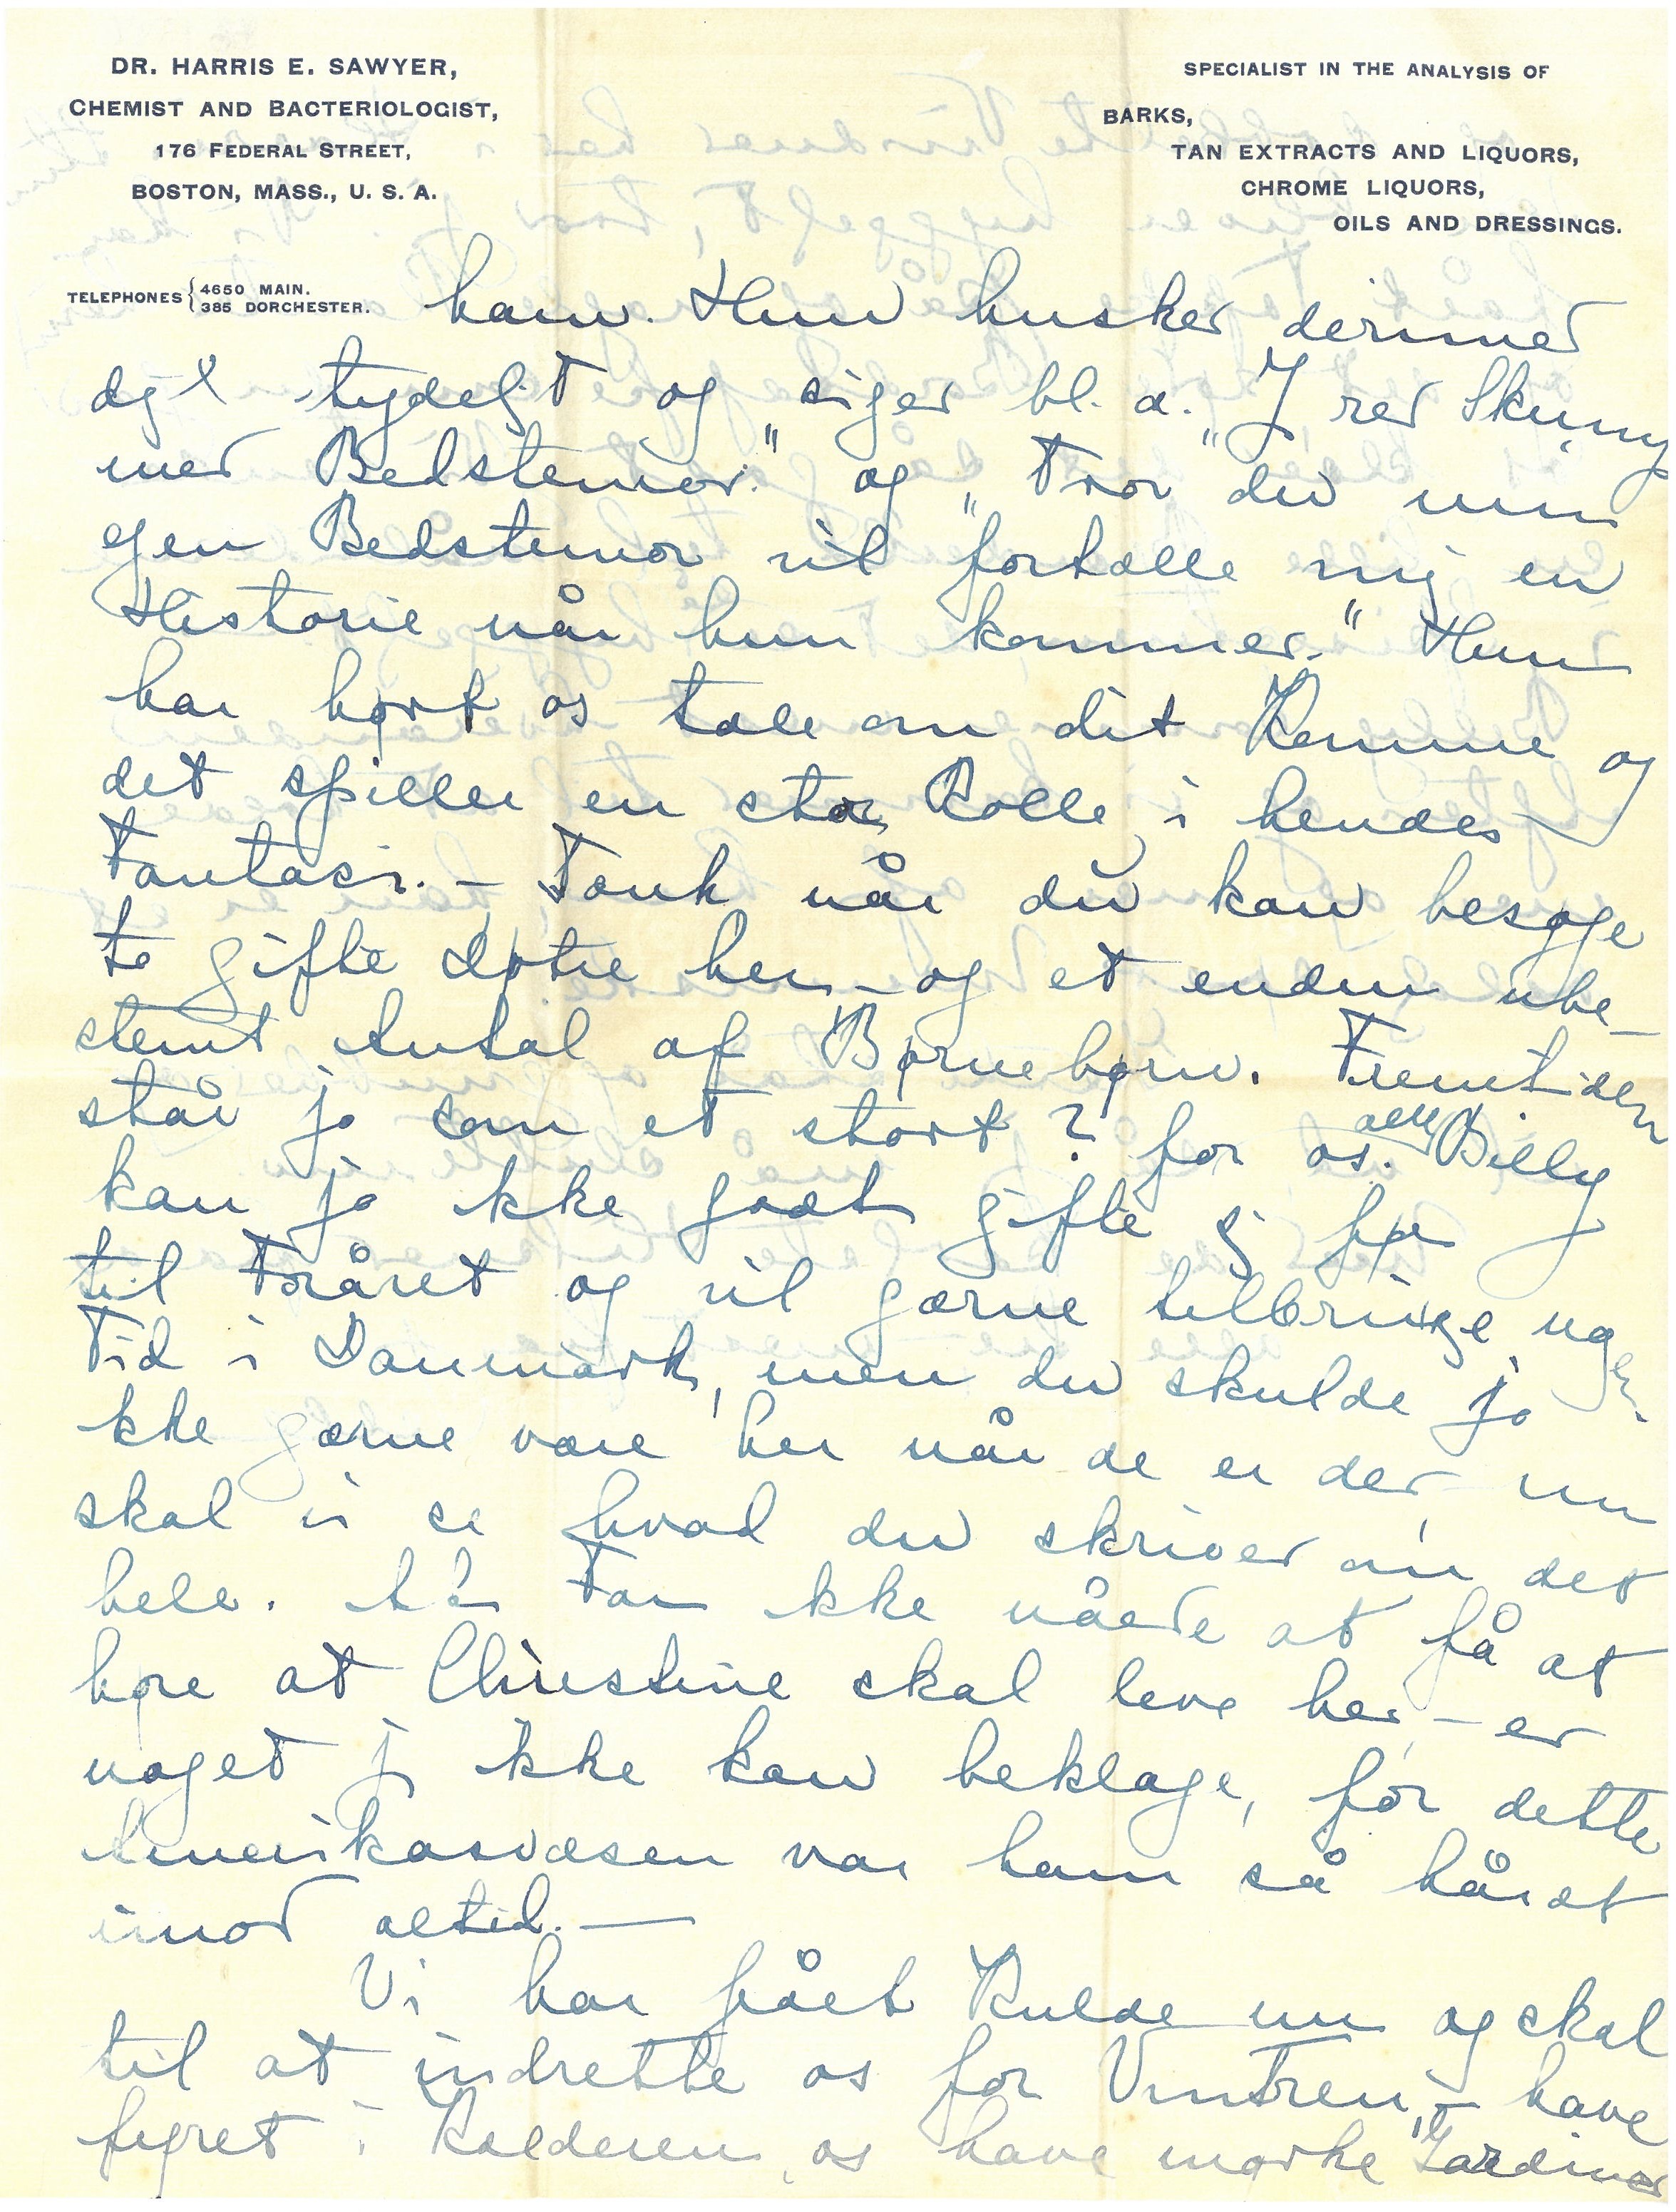 DR. HARRIS E. SAWYER,
CHEMIST AND BACTERIOLOGIST,
176 FEDERAL STREET,
BOSTON, MASS., U. S. A.
TELEPHONES { 4650 MAIN.
385 DORCHESTER.
SPECIALIST IN THE ANALYSIS OF
BARKS,
TAN EXTRACTS AND LIQUORS,
CHROME LIQUORS,
OILS AND DRESSINGS.
ham. Hun husker
dig tydeligt og siger bl. a. "I red
med Bedstemor." og "Tror du min
egen Bedstemor vil fortælle mig en
Historie når hun kommer." Hun
har hørt os tale om dit Komme og
det spiller en stor Rolle i hendes
Fantasi. – Tænk når du kan besøge
to gifte Døtre her – og et endnu ube-
stemt Antal af Børnebørn. Fremtiden
står jo som et stort ? for os alle. Billy
kan jo ikke godt gifte sig før
til Foråret og vil gærne tilbringe nogen
Tid i Danmark, men du skulde jo
ikke gærne være her når de er der, nu
skal vi se hvad du skriver om det
hele. At Far ikke nåede at få at
høre at Christine skal leve her – er
noget jeg ikke kan beklage, for dette
Amerikasvæsen var ham så hårdt
imod altid. –
Vi har fået Kulde nu og skal
til at indrette os for Vintren, – have
fyret i Kælderen og have mørke Gardiner